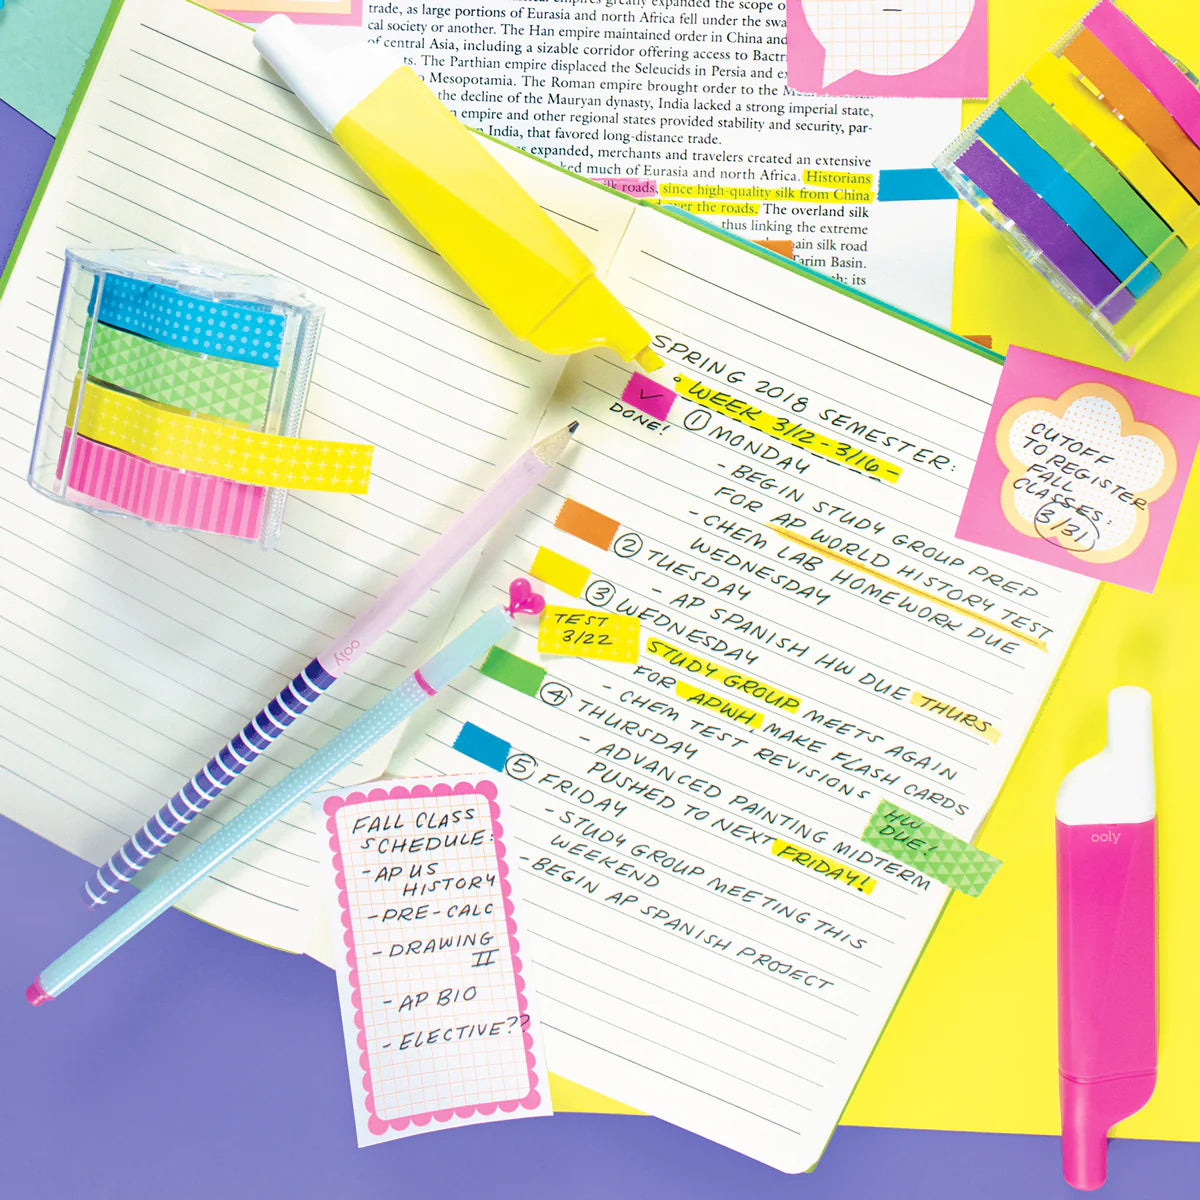 greatly expanded the scope o
trade, as large portions of Eurasia and north Africa fell under the swa
cal society or another. The Han empire maintained order in China and
of central Asia, including a sizable corridor offering access to Bactr
ts. The Parthian empire displaced the Seleucids in Persia and ex
Mesopotamia. The Roman empire brought order to the
the decline of the Mauryan dynasty, India lacked a strong imperial state,
n empire and other regional states provided stability and security, par-
n India, that favored long-distance trade.
s expanded, merchants and travelers created an extensive
ked much of Eurasia and north Africa. Historians
lk roads, since high-quality silk from China
over the roads. The overland silk
thus linking the extreme
ain silk road
Tarim Basin.
h: its
SPRING 2018 SEMESTER:
• WEEK 3/12 - 3/16 -
✓
DONE!
① MONDAY
- BEGIN STUDY GROUP PREP
FOR AP WORLD HISTORY TEST
- CHEM LAB HOMEWORK DUE
WEDNESDAY
② TUESDAY
- AP SPANISH HW DUE THURS
③ WEDNESDAY
TEST
3/22
STUDY GROUP MEETS AGAIN
FOR APWH, MAKE FLASH CARDS
- CHEM TEST REVISIONS
④ THURSDAY
- ADVANCED PAINTING MIDTERM
PUSHED TO NEXT FRIDAY!
HW
DUE!
⑤ FRIDAY
- STUDY GROUP MEETING THIS
WEEKEND
- BEGIN AP SPANISH PROJECT
CUTOFF
TO REGISTER
FALL
CLASSES:
3/31
FALL CLASS
SCHEDULE:
- AP US
HISTORY
- PRE-CALC
- DRAWING
II
- AP BIO
- ELECTIVE??
ooly
ooly